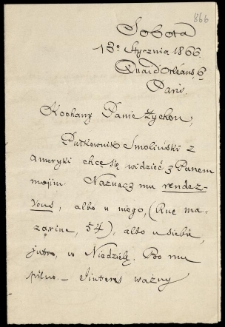 866
Sobota
13º Stycznia 1866
Quai d'Orléans 6
Paris.
Kochany Panie
Pułkownik Smoliński z
Ameryki chce się widzieć z Panem
moim. Naznacz mu rendez-
vous, albo u niego, (Rue Ma-
zarine, 54), albo u siebie,
jutro, w Niedzielę. Bo mu
pilno — Interes ważny